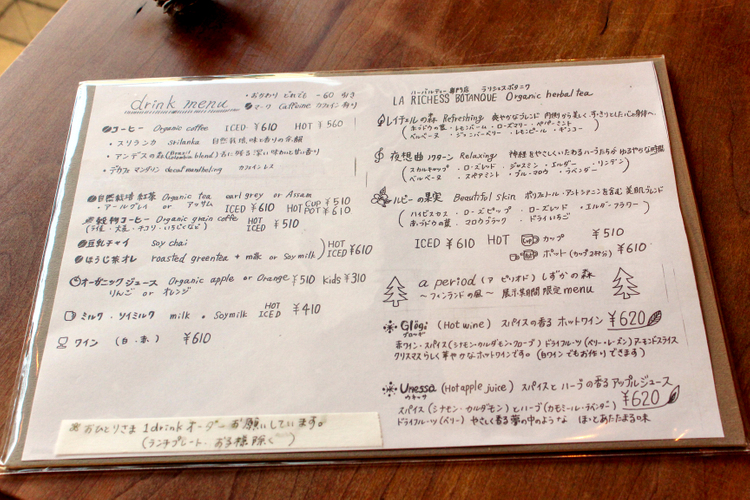 drink menu
・おかわり どれでも -60 引き
マーク Caffeine カフェイン有り
コーヒー Organic coffee ICED ¥610 HOT ¥560
・スリランカ srilanka 自然栽培 味と香りの余韻
・アンデスの森 (Brazil Colombia blend) 舌に残る深い味わいと甘い香り
・デカフェ マンデリン decaf mandheling カフェインレス
自然栽培 紅茶 Organic tea earl grey or Assam
・アールグレイ or アッサム ICED ¥610 HOT CUP ¥510 POT ¥610
穀物コーヒー Organic grain coffe HOT ICED ¥510
(ライ麦・大麦・チコリ・いちじくなど)
豆乳チャイ Soy chai
ほうじ茶オレ roasted greentea + milk or Soy milk HOT ICED ¥610
オーガニックジュース Organic apple or Orange ¥510 kids ¥310
りんご or オレンジ
ミルク・ソイミルク milk・Soymilk HOT ICED ¥410
ワイン (白・赤) ¥610
※おひとりさま 1drink オーダーお願いしています。
(ランチプレート、 除く)
ハーバルティー専門店 ラリシャスボタニク
LA RICHESS BOTANQUE Organic herbal tea
レイチェルの森 Refreshing 爽やかなブレンド 内側から美しく すっきりとしたい心身体へ、
(ホーリーの葉・レモンバーム・ローズマリー・ペパーミント
ベルベーヌ・ジュニパーベリー・レモンピール・ギンコー)
夜想曲 ノクターン Relaxing 神経をやさしくいたわるハーブたちが ゆるやかな時間
(スカルキャップ・ローズレッド・ジャスミン・エルダー・リンデン
ベルベーヌ・スペアミント・ブルーマロウ・ラベンダー)
ルビーの果実 Beautiful skin ポリフェノール・アントシアニンを含む美肌ブレンド
(ハイビスカス・ローズヒップ・ローズレッド・エルダーフラワー
ぶどうの葉・マロウブラック・ドライいちご)
ICED ¥610 HOT カップ ¥510
ポット(カップ2杯分) ¥610
a period (ア ピリオド) しずかの森
〜フィンランドの風〜 展示「」期間 限定 menu
Glögi (Hot wine) スパイスの香る ホットワイン ¥620
グロッギ
赤ワイン・スパイス(シナモン・カルダモン・クローブ) ドライフルーツ(ベリー・レーズン) アーモンドスライス
クリスマスらしく華やかなホットワインです。(白ワインでもお作りできます)
Unessa (Hot apple juice) スパイスとハーブの香るアップルジュース
ウネッサ ¥620
スパイス(シナモン・カルダモン) とハーブ(カモミール・ラベンダー)
ドライフルーツ(ベリー) やさしく香る夢の中のような ほっとあたたまる味